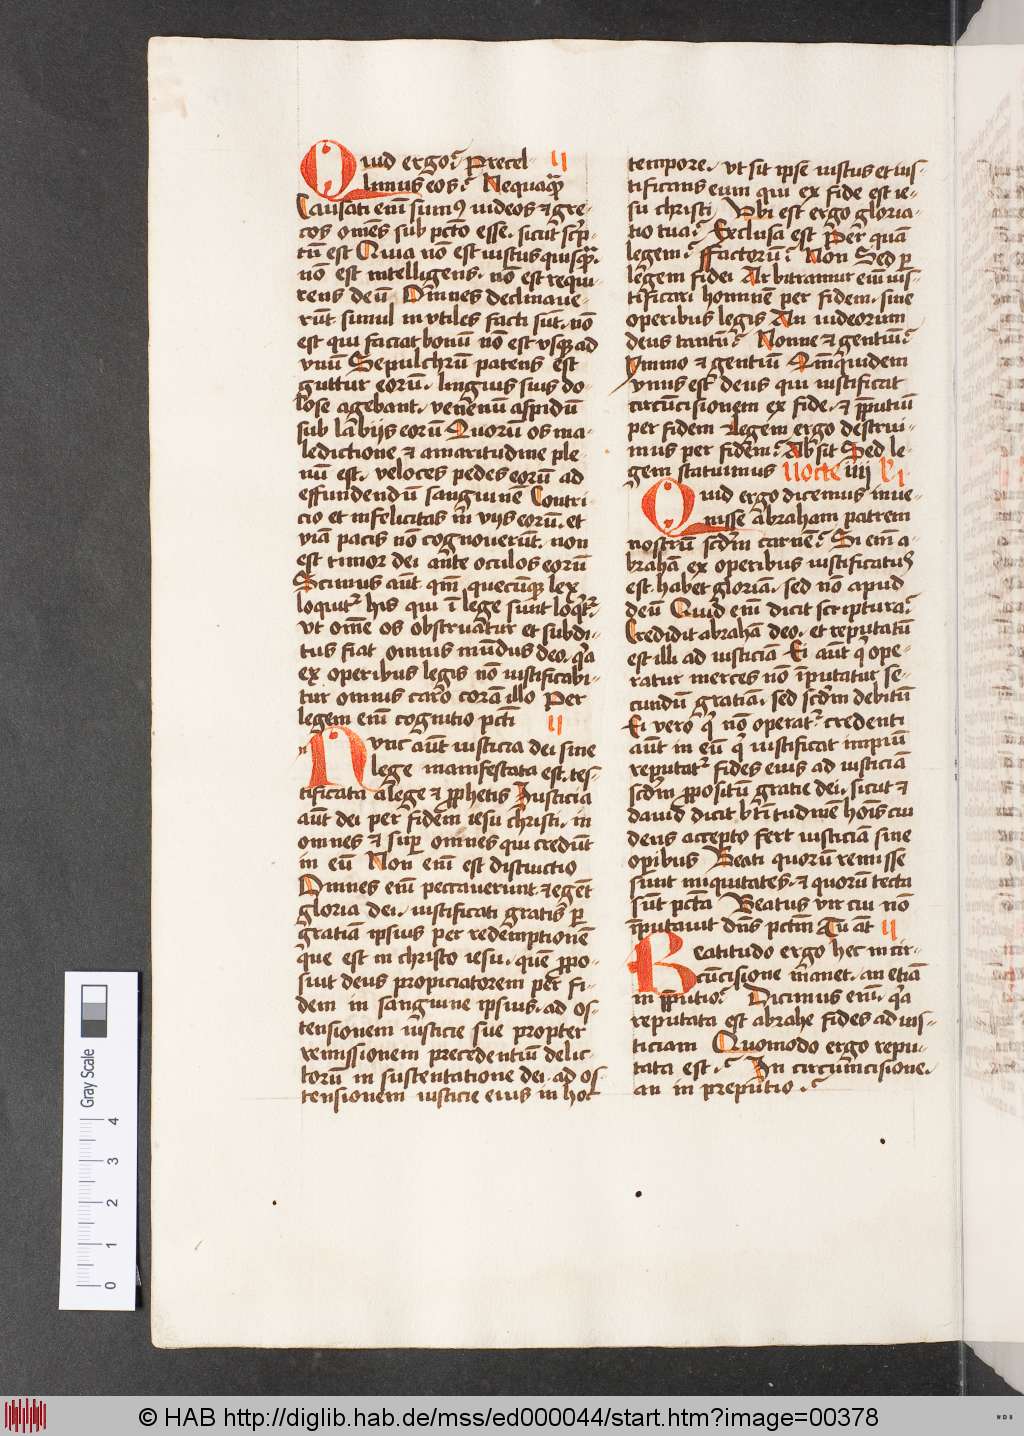 Quid ergo? Precel- ii
limus eos? Nequaqȝ
Causati em̄ sumꝰ iudeos ⁊ gre-
cos om̄es sub pctō esse. sicut scp̄-
tū est Quia nō est iustus quisqȝ.
nō est intelligens. nō est requi-
rens deū Om̄nes declinaue-
rūt simul inutiles facti sūt. nō
est qui faciat bonū nō est vsqȝ ad
vnū Sepulchrū patens est
guttur eorū. linguis suis do-
lose agebant. venenū aspidū
sub labijs eorū Quorū os ma-
ledictione ⁊ amaritudine ple-
nū est. veloces pedes eorū ad
effundendū sanguinē Contri-
cio et infelicitas ī vijs eorū. et
viā pacis nō cognouerūt. non
est timor dei ante oculos eorū
Scimus aūt qm̄ quecūqȝ lex
loquitʳ his qui ī lege sunt loqʳtʳ.
vt om̄e os obstruatur et subdi-
tus fiat omnis mūdus deo. qʳa
ex operibus legis nō iustificabi-
tur omnis caro corā illo Per
legem em̄ cognitio pctī ii
n Nunc aūt iusticia dei sine
lege manifestata est. tes-
tificata a lege ⁊ ꝓphetis Iusticia
aūt dei per fidem iesu christi. in
omnes ⁊ suꝑ omnes qui credūt
in eū Non em̄ est distinctio
Omnes em̄ peccauerunt ⁊ egēt
gloria dei. iustificati gratis ꝑ
gratiā ipsius per redemptionē
que est in christo iesu. quē ꝓpo-
suit deus propiciatorem per fi-
dem in sanguine ipsius. ad os-
tensionem iusticie sue propter
remissionem precedentiū delic-
torū in sustentatione dei. ad os-
tensionem iusticie eius in hoc
tempore. vt sit ipse iustus et ius-
tificans eum qui ex fide est ie-
su christi Vbi est ergo gloria-
tio tua? Exclusa est Per quā
legem? ffactorū? Non Sed ꝑ
legem fidei Arbitramur em̄ ius-
tificari hominē per fidem. sine
operibus legis An iudeorum
deus tantū? Nonne ⁊ gentiū?
Ymmo ⁊ gentiū Qm̄ quidem
vnus est deus qui iustificat
circūcisionem ex fide. ⁊ ꝑputiū
per fidem Legem ergo destrui-
mus per fidem? Absit Sed le-
gem statuimus Nocte iiij L i
Quid ergo dicemus inue-
nisse abraham patrem
nostrū scdm̄ carnē? Si em̄ a-
brahā ex operibus iustificatuˢ
est. habet gloriā. sed nō apud
deū Quid em̄ dicit scriptura?
Credidit abrahā deo. et reputatū
est illi ad iusticiā Ei aūt q̇ ope-
ratur merces nō īputatur se-
cundū gratiā. sed scdm̄ debitū
Ei vero q̇ nō operatʳ. credenti
aūt in eū q̇ iustificat impiū
reputatʳ fides eius ad iusticiā
scdm̄ ꝓpositū gratie dei. sicut ⁊
dauid dicit btītudinē hoīs cui
deus accepto fert iusticiā sine
oꝑibus Beati quorū remisse
sunt iniquitates. ⁊ quorū tecta
sūt pctā Beatus vir cui nō
īputauit dn̄s pctm̄ Tu aūt ii
Beatitudo ergo hec in cir-
cūcisione manet. an etiā
in ꝑputio? Dicimus em̄. qʳa
reputata est abrahe fides ad ius-
ticiam Quomodo ergo repu-
tata est.? In circumcisione.
an in preputio.?
Gray Scale
0 1 2 3 4
© HAB http://diglib.hab.de/mss/ed000044/start.htm?image=00378